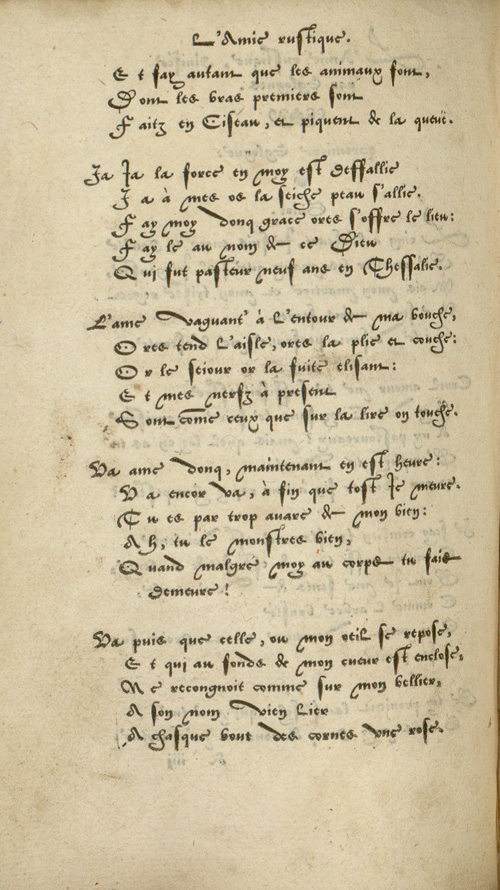 L'Amie rustique.
Et fay autant que les animaux font,
Dont les bras premiers sont
Faitz en Ciseau, et piquent de la queuë.
Ja Ja la force en moy est deffallie
Ja à mes os la seiche peau s'allie.
Fay moy donq grace ores s'offre le lieu:
Fay le au nom de ce Dieu
Qui fut pasteur neuf ans en Thessalie.
L'ame vaguant' à L'entour de ma bouche,
Ores tend L'aisle, ores la plie et couche:
Or le seiour or la fuite elisant:
Et mes nerfz à present
Sont cōme ceux que sur la lire on touche.
Va ame donq, maintenant en est heure:
Va encor va, à fin que tost Je meure.
Tu es par trop auare de mon bien:
Ah, tu le monstres bien,
Quand malgre moy au corps tu fais
demeure!
Va puis que celle, ou mon oeil se repose,
Et qui au fonds de mon cueur est enclose,
Ne recongnoit comme sur mon bellier,
A son nom vien lier
A chasque bout des cornes vne rose.